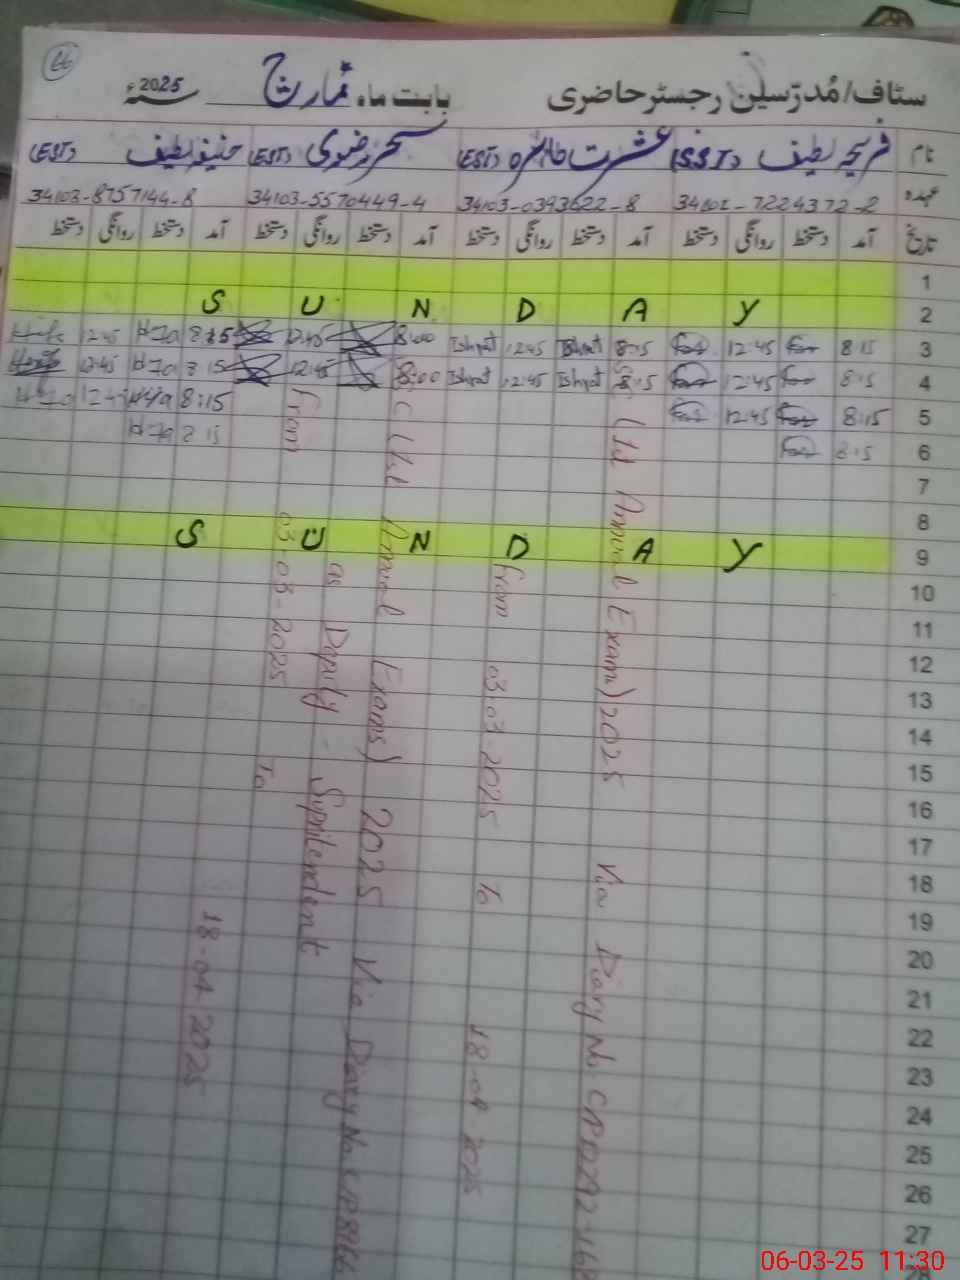 66
سٹاف/مُدرّسین رجسٹر حاضری بابت ماہ مارچ سنہ 2025ء
نام فریحہ لطیف (SST) عشرت طاہرہ (EST) سحر رضوی (EST) حنیفہ لطیف (EST)
عہدہ 34101-7224372-2 34103-0393622-8 34103-5570449-4 34103-8757144-8
تاریخ آمد دستخط روانگی دستخط آمد دستخط روانگی دستخط آمد دستخط روانگی دستخط آمد دستخط روانگی دستخط
1
2 S U N D A Y
3 8:15 12:45 8:15 Ishrat 12:45 Ishrat 8:00 12:45 8:15 12:45
4 8:15 12:45 8:15 Ishrat 12:45 Ishrat 8:00 12:45 8:15 12:45
5 8:15 12:45 8:15
6 8:15 8:15
7
8
9 S U N D A Y
10
11
12
13
14
15
16
17
18
19
20
21
22
23
24
25
26
27
28
Annual Exam) 2025 Via Diary No
from 03-03-2025 To 18-04-2025
Annual Exams) 2025 Via Diary No
as Deputy - Supritendent
from 03-03-2025 To 18-04-2025
06-03-25 11:30